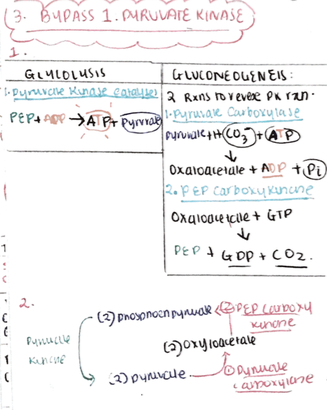 3. BYPASS 1. PYRUVATE KINASE
1.
GLYCOLYSIS
1. Pyruvate Kinase catalyses
PEP + ADP → ATP + Pyruvate
GLUCONEOGENEIS:
2 Rxns to reverse PK rxn.
1. Pyruvate Carboxylase
Pyruvate + H CO3⁻ + ATP
↓
Oxaloacetate + ADP + Pi
2. PEP Carboxykinase
Oxaloacetate + GTP
↓
PEP + GDP + CO2.
2.
(2) Phosphoenpyruvate ← (2) PEP Carboxy
kinase
(2) Oxyloacetate
Pyruvate
kinase
(2) Pyruvate
① Pyruvate
carboxylase